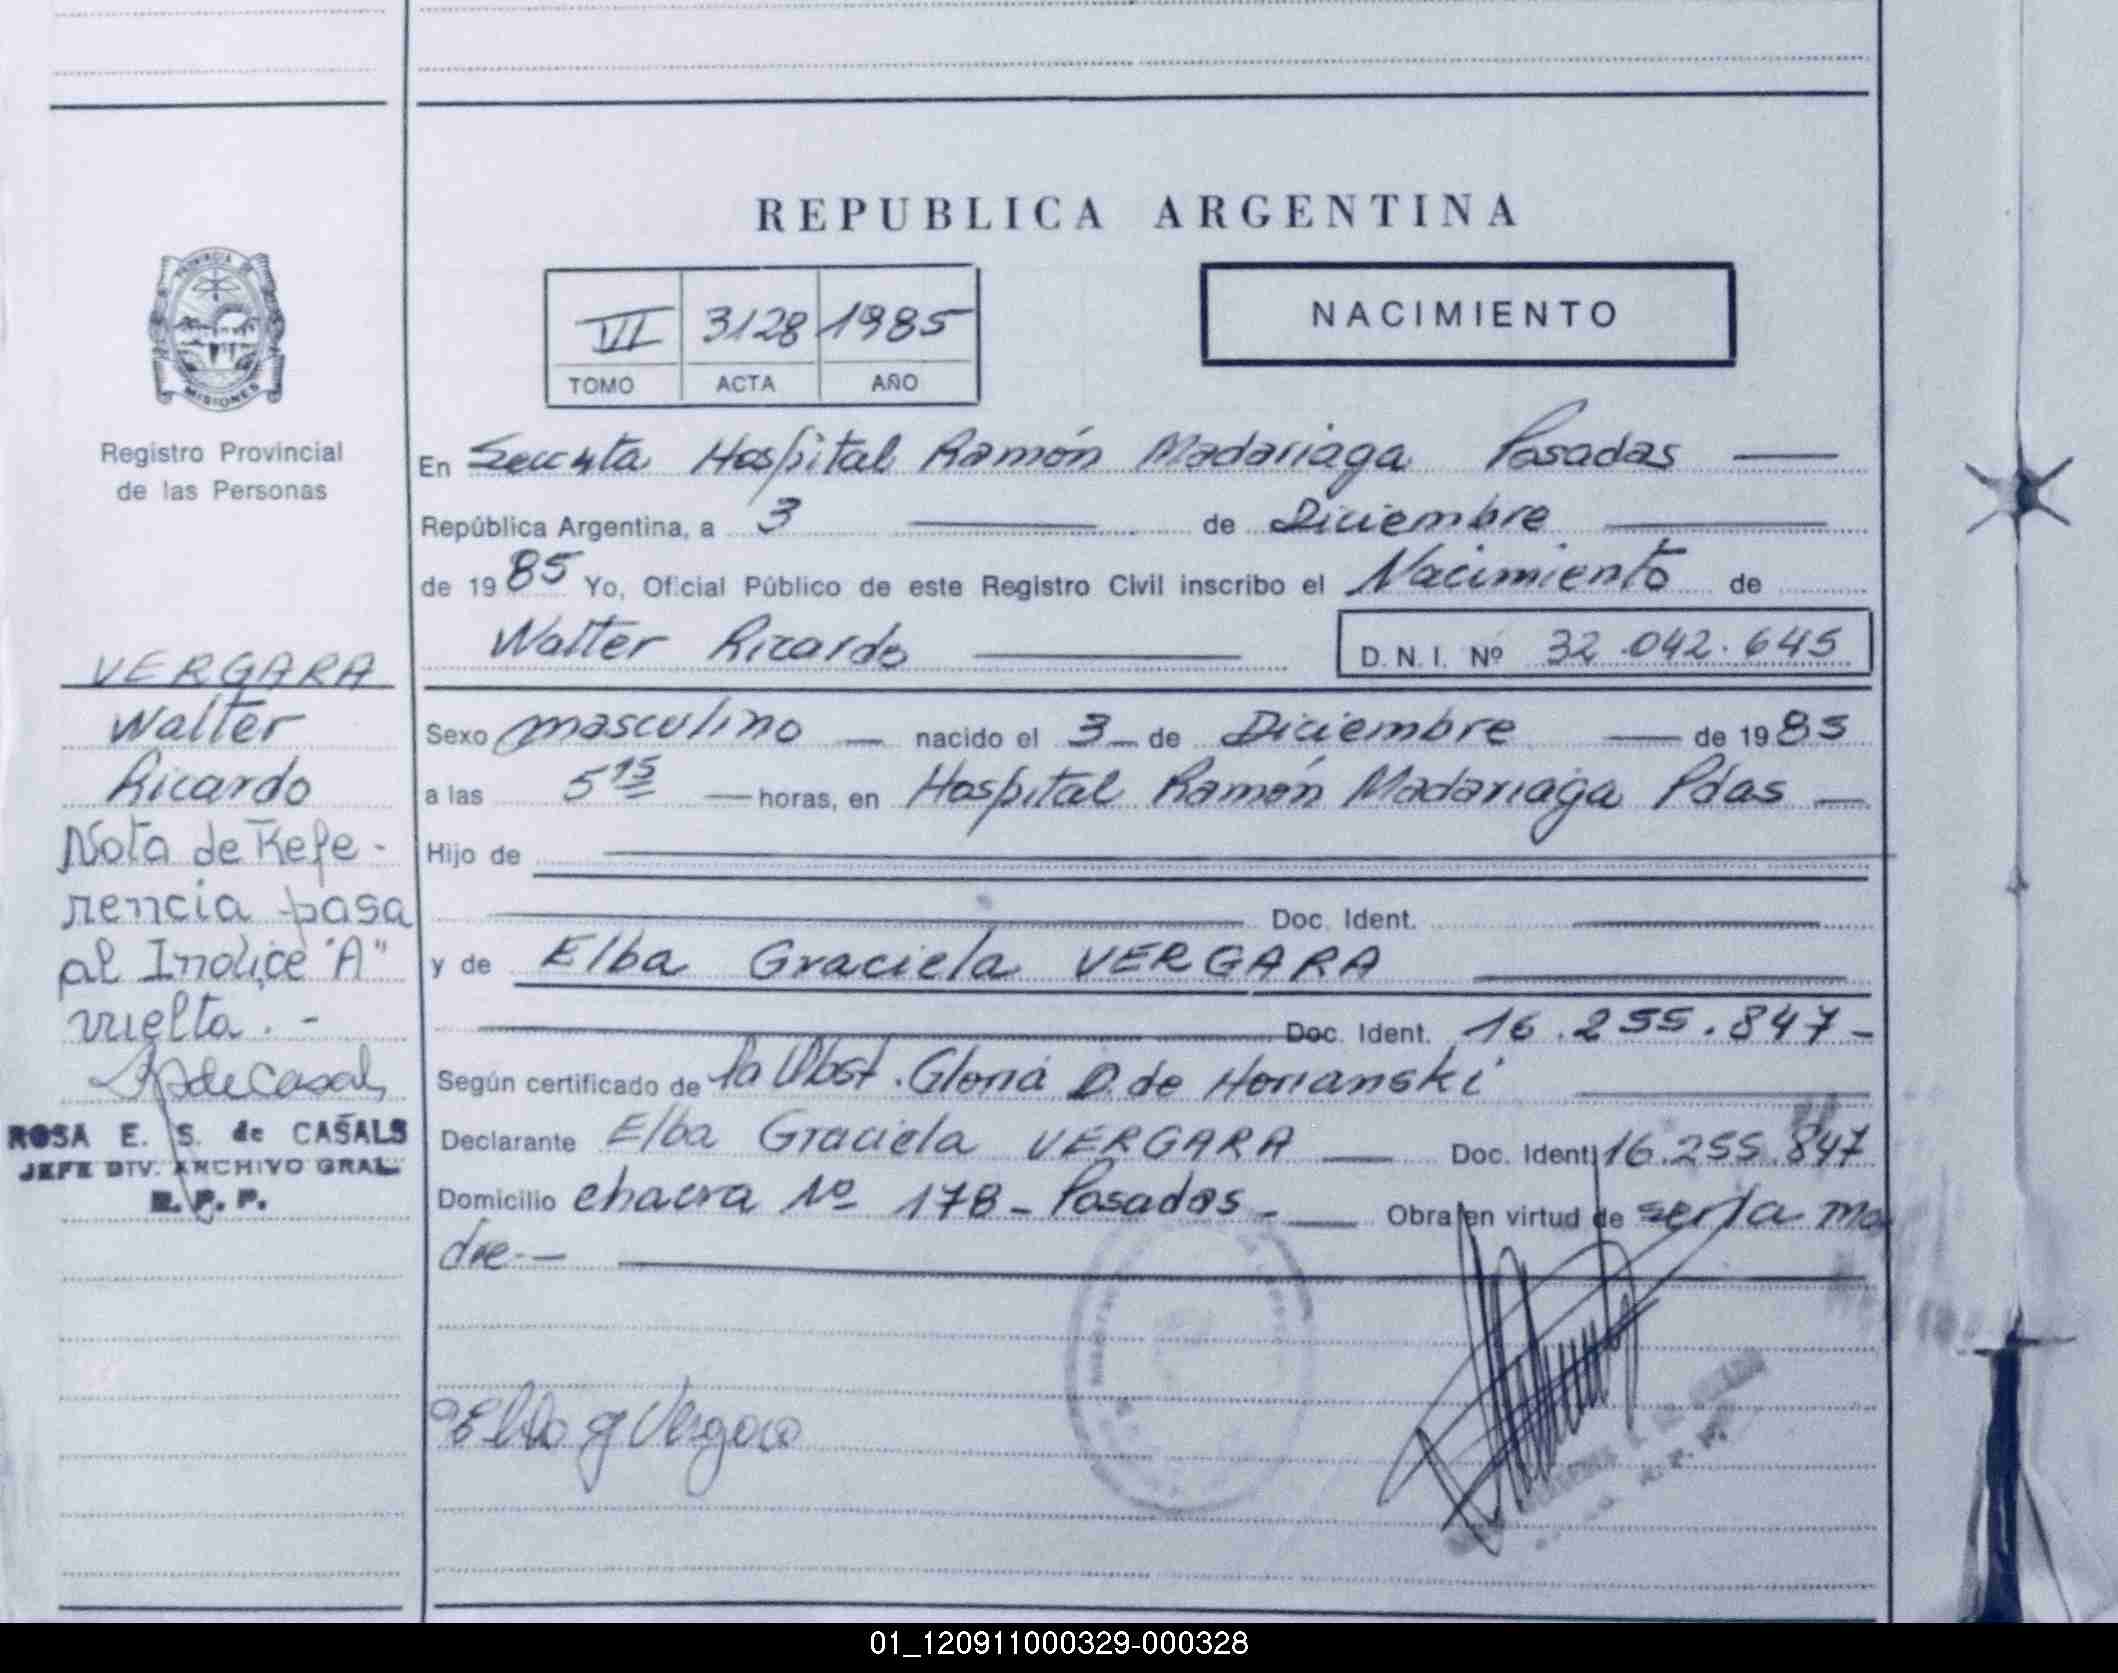 REPUBLICA ARGENTINA
VI 3128 1985
TOMO ACTA AÑO
NACIMIENTO
PROVINCIA DE
MISIONES
Registro Provincial
de las Personas
VERGARA
Walter
Ricardo
Nota de Refe-
rencia pasa
al Indice "A"
vuelta.-
ROSA E. S. de CASALS
JEFE DIV. ARCHIVO GRAL.
R. P. P.
En Hospital Ramón Madariaga Posadas
República Argentina, a 3 de Diciembre
de 1985 Yo, Oficial Público de este Registro Civil inscribo el Nacimiento de
Walter Ricardo D.N.I. Nº 32.042.645
Sexo masculino nacido el 3 de Diciembre de 1985
a las 5 15 horas, en Hospital Ramón Madariaga Pdas
Hijo de
Doc. Ident.
y de Elba Graciela VERGARA
Doc. Ident. 16.255.847-
Según certificado de la Obst. Gloria D. de Horianski
Declarante Elba Graciela VERGARA Doc. Ident. 16.255.847
Domicilio chacra Nº 178 - Posadas - Obra en virtud de ser la ma
dre.-
Elba G Vergara
01_120911000329-000328